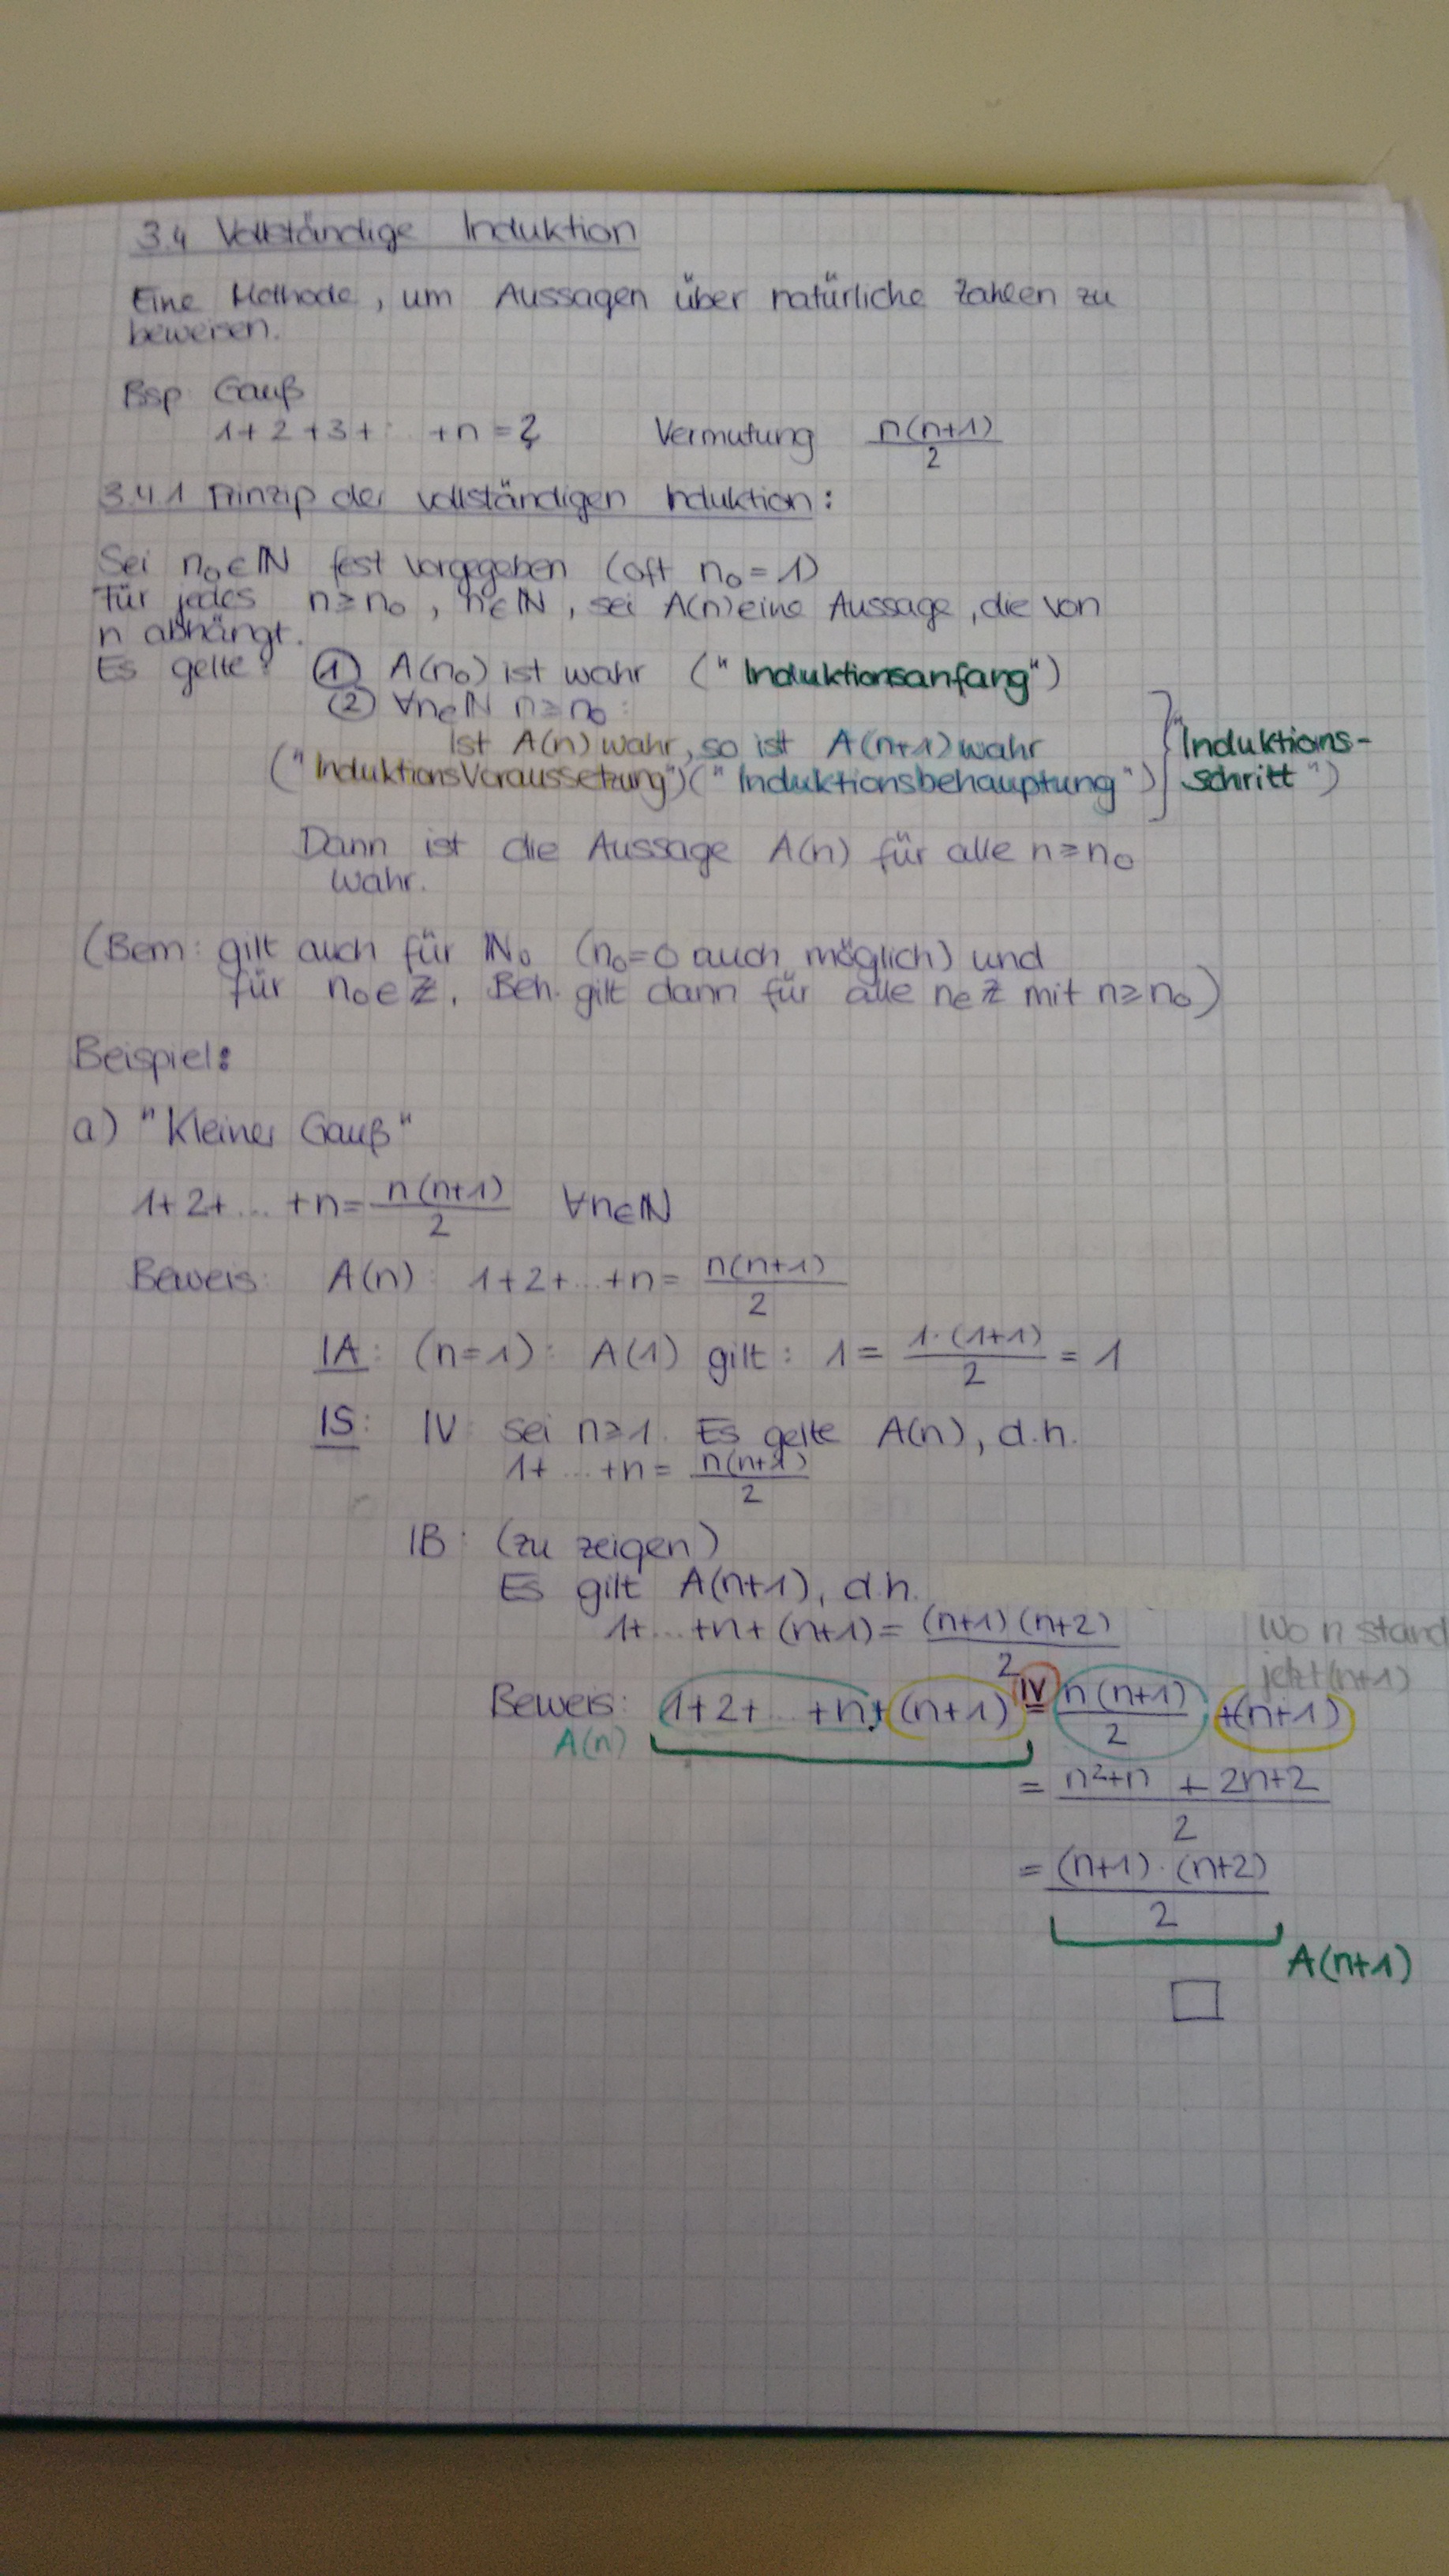 3.4 Vollständige Induktion
Eine Methode, um Aussagen über natürliche Zahlen zu
beweisen.
Bsp Gauß
1+2+3+...+n=? Vermutung n(n+1)/2
3.4.1 Prinzip der vollständigen Induktion:
Sei n₀∈ℕ fest vorgegeben (oft n₀=1)
Für jedes n≥n₀, n∈ℕ, sei A(n) eine Aussage, die von
n abhängt.
Es gelte: ① A(n₀) ist wahr ("Induktionsanfang")
② ∀n∈ℕ n≥n₀:
Ist A(n) wahr, so ist A(n+1) wahr
("InduktionsVoraussetzung") ("Induktionsbehauptung") } "Induktions-
schritt")
Dann ist die Aussage A(n) für alle n≥n₀
wahr.
(Bem: gilt auch für ℕ₀ (n₀=0 auch möglich) und
für n₀∈ℤ, Beh. gilt dann für alle n∈ℤ mit n≥n₀)
Beispiel:
a) "Kleiner Gauß"
1+2+...+n= n(n+1)/2 ∀n∈ℕ
Beweis: A(n): 1+2+...+n= n(n+1)/2
IA: (n=1): A(1) gilt: 1= 1·(1+1)/2 = 1
IS: IV: Sei n≥1. Es gelte A(n), d.h.
1+...+n= n(n+1)/2
IB: (zu zeigen)
Es gilt A(n+1), d.h.
1+...+n+(n+1)= (n+1)(n+2)/2
Wo n stand
jetzt (n+1)
Beweis: 1+2+...+n+(n+1) IV= n(n+1)/2 +(n+1)
A(n)
= n²+n + 2n+2/2
= (n+1)·(n+2)/2
A(n+1)
□